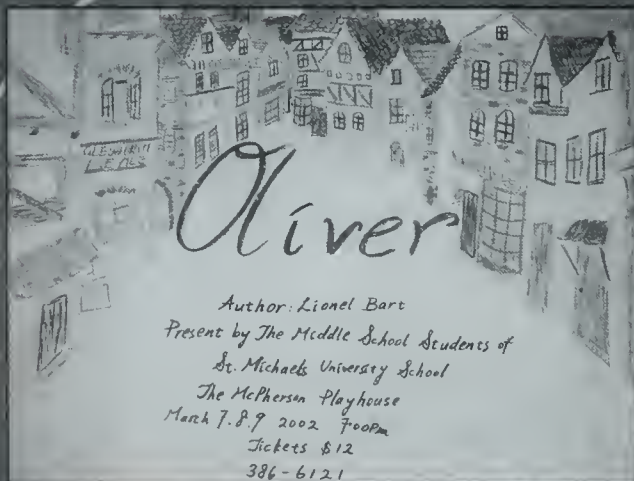 Oliver
Author: Lionel Bart
Present by The Middle School Students of
St. Michaels University School
The McPherson Playhouse
March 7.8.9 2002 7:00pm
Tickets $12
386-6121